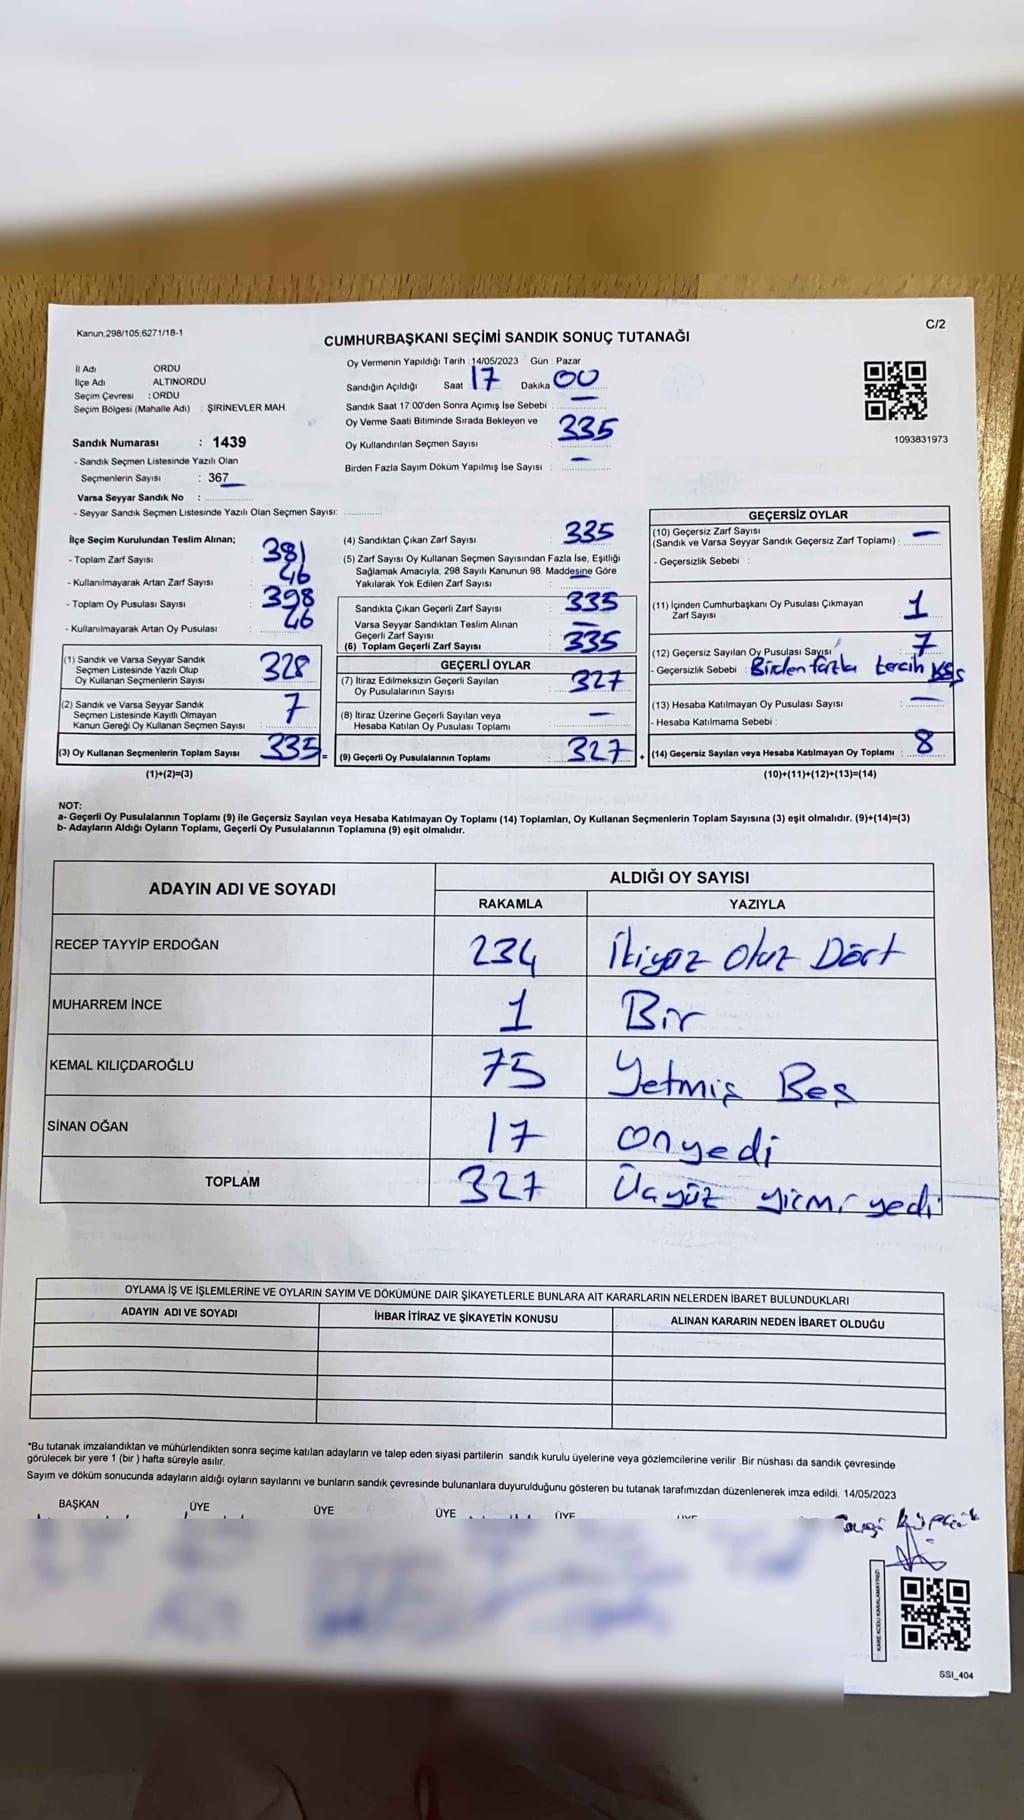 Kanun,298/105,6271/18-1
C/2
CUMHURBAŞKANI SEÇİMİ SANDIK SONUÇ TUTANAĞI
İl Adı ORDU
İlçe Adı ALTINORDU
Seçim Çevresi : ORDU
Seçim Bölgesi (Mahalle Adı) : ŞİRİNEVLER MAH.
Sandık Numarası : 1439
- Sandık Seçmen Listesinde Yazılı Olan
Seçmenlerin Sayısı : 367
Varsa Seyyar Sandık No :
- Seyyar Sandık Seçmen Listesinde Yazılı Olan Seçmen Sayısı:
Oy Vermenin Yapıldığı Tarih : 14/05/2023 Gün : Pazar
Sandığın Açıldığı Saat 17 Dakika 00
Sandık Saat 17:00'den Sonra Açımış İse Sebebi : —
Oy Verme Saati Bitiminde Sırada Bekleyen ve
Oy Kullandırılan Seçmen Sayısı : 335
Birden Fazla Sayım Döküm Yapılmış İse Sayısı : —
1093831973
İlçe Seçim Kurulundan Teslim Alınan;
- Toplam Zarf Sayısı : 381
- Kullanılmayarak Artan Zarf Sayısı : 46
- Toplam Oy Pusulası Sayısı : 398
- Kullanılmayarak Artan Oy Pusulası : 66
(1) Sandık ve Varsa Seyyar Sandık
Seçmen Listesinde Yazılı Olup
Oy Kullanan Seçmenlerin Sayısı 328
(2) Sandık ve Varsa Seyyar Sandık
Seçmen Listesinde Kayıtlı Olmayan
Kanun Gereği Oy Kullanan Seçmen Sayısı 7
(3) Oy Kullanan Seçmenlerin Toplam Sayısı 335 =
(1)+(2)=(3)
(4) Sandıktan Çıkan Zarf Sayısı : 335
(5) Zarf Sayısı Oy Kullanan Seçmen Sayısından Fazla İse, Eşitliği
Sağlamak Amacıyla, 298 Sayılı Kanunun 98. Maddesine Göre
Yakılarak Yok Edilen Zarf Sayısı : —
Sandıkta Çıkan Geçerli Zarf Sayısı : 335
Varsa Seyyar Sandıktan Teslim Alınan
Geçerli Zarf Sayısı : —
(6) Toplam Geçerli Zarf Sayısı : 335
GEÇERLİ OYLAR
(7) İtiraz Edilmeksizin Geçerli Sayılan
Oy Pusulalarının Sayısı : 327
(8) İtiraz Üzerine Geçerli Sayılan veya
Hesaba Katılan Oy Pusulası Toplamı : —
(9) Geçerli Oy Pusulalarının Toplamı : 327 +
GEÇERSİZ OYLAR
(10) Geçersiz Zarf Sayısı
(Sandık ve Varsa Seyyar Sandık Geçersiz Zarf Toplamı) : —
- Geçersizlik Sebebi :
(11) İçinden Cumhurbaşkanı Oy Pusulası Çıkmayan
Zarf Sayısı : 1
(12) Geçersiz Sayılan Oy Pusulası Sayısı : 7
- Geçersizlik Sebebi : Birden fazla tercih
(13) Hesaba Katılmayan Oy Pusulası Sayısı : —
- Hesaba Katılmama Sebebi :
(14) Geçersiz Sayılan veya Hesaba Katılmayan Oy Toplamı : 8
(10)+(11)+(12)+(13)=(14)
NOT:
a- Geçerli Oy Pusulalarının Toplamı (9) ile Geçersiz Sayılan veya Hesaba Katılmayan Oy Toplamı (14) Toplamları, Oy Kullanan Seçmenlerin Toplam Sayısına (3) eşit olmalıdır. (9)+(14)=(3)
b- Adayların Aldığı Oyların Toplamı, Geçerli Oy Pusulalarının Toplamına (9) eşit olmalıdır.
ADAYIN ADI VE SOYADI ALDIĞI OY SAYISI
RAKAMLA YAZIYLA
RECEP TAYYİP ERDOĞAN 234 İkiyüz Otuz Dört
MUHARREM İNCE 1 Bir
KEMAL KILIÇDAROĞLU 75 Yetmiş Beş
SİNAN OĞAN 17 onyedi
TOPLAM 327 Üçyüz yirmi yedi
OYLAMA İŞ VE İŞLEMLERİNE VE OYLARIN SAYIM VE DÖKÜMÜNE DAİR ŞİKAYETLERLE BUNLARA AİT KARARLARIN NELERDEN İBARET BULUNDUKLARI
ADAYIN ADI VE SOYADI İHBAR İTİRAZ VE ŞİKAYETİN KONUSU ALINAN KARARIN NEDEN İBARET OLDUĞU
*Bu tutanak imzalandıktan ve mühürlendikten sonra seçime katılan adayların ve talep eden siyasi partilerin sandık kurulu üyelerine veya gözlemcilerine verilir .Bir nüshası da sandık çevresinde
görülecek bir yere 1 (bir ) hafta süreyle asılır.
Sayım ve döküm sonucunda adayların aldığı oyların sayılarını ve bunların sandık çevresinde bulunanlara duyurulduğunu gösteren bu tutanak tarafımızdan düzenlenerek imza edildi. 14/05/2023
BAŞKAN ÜYE ÜYE ÜYE ÜYE ÜYE
KARE KODU KARALAMAYINIZ!
SSI_404